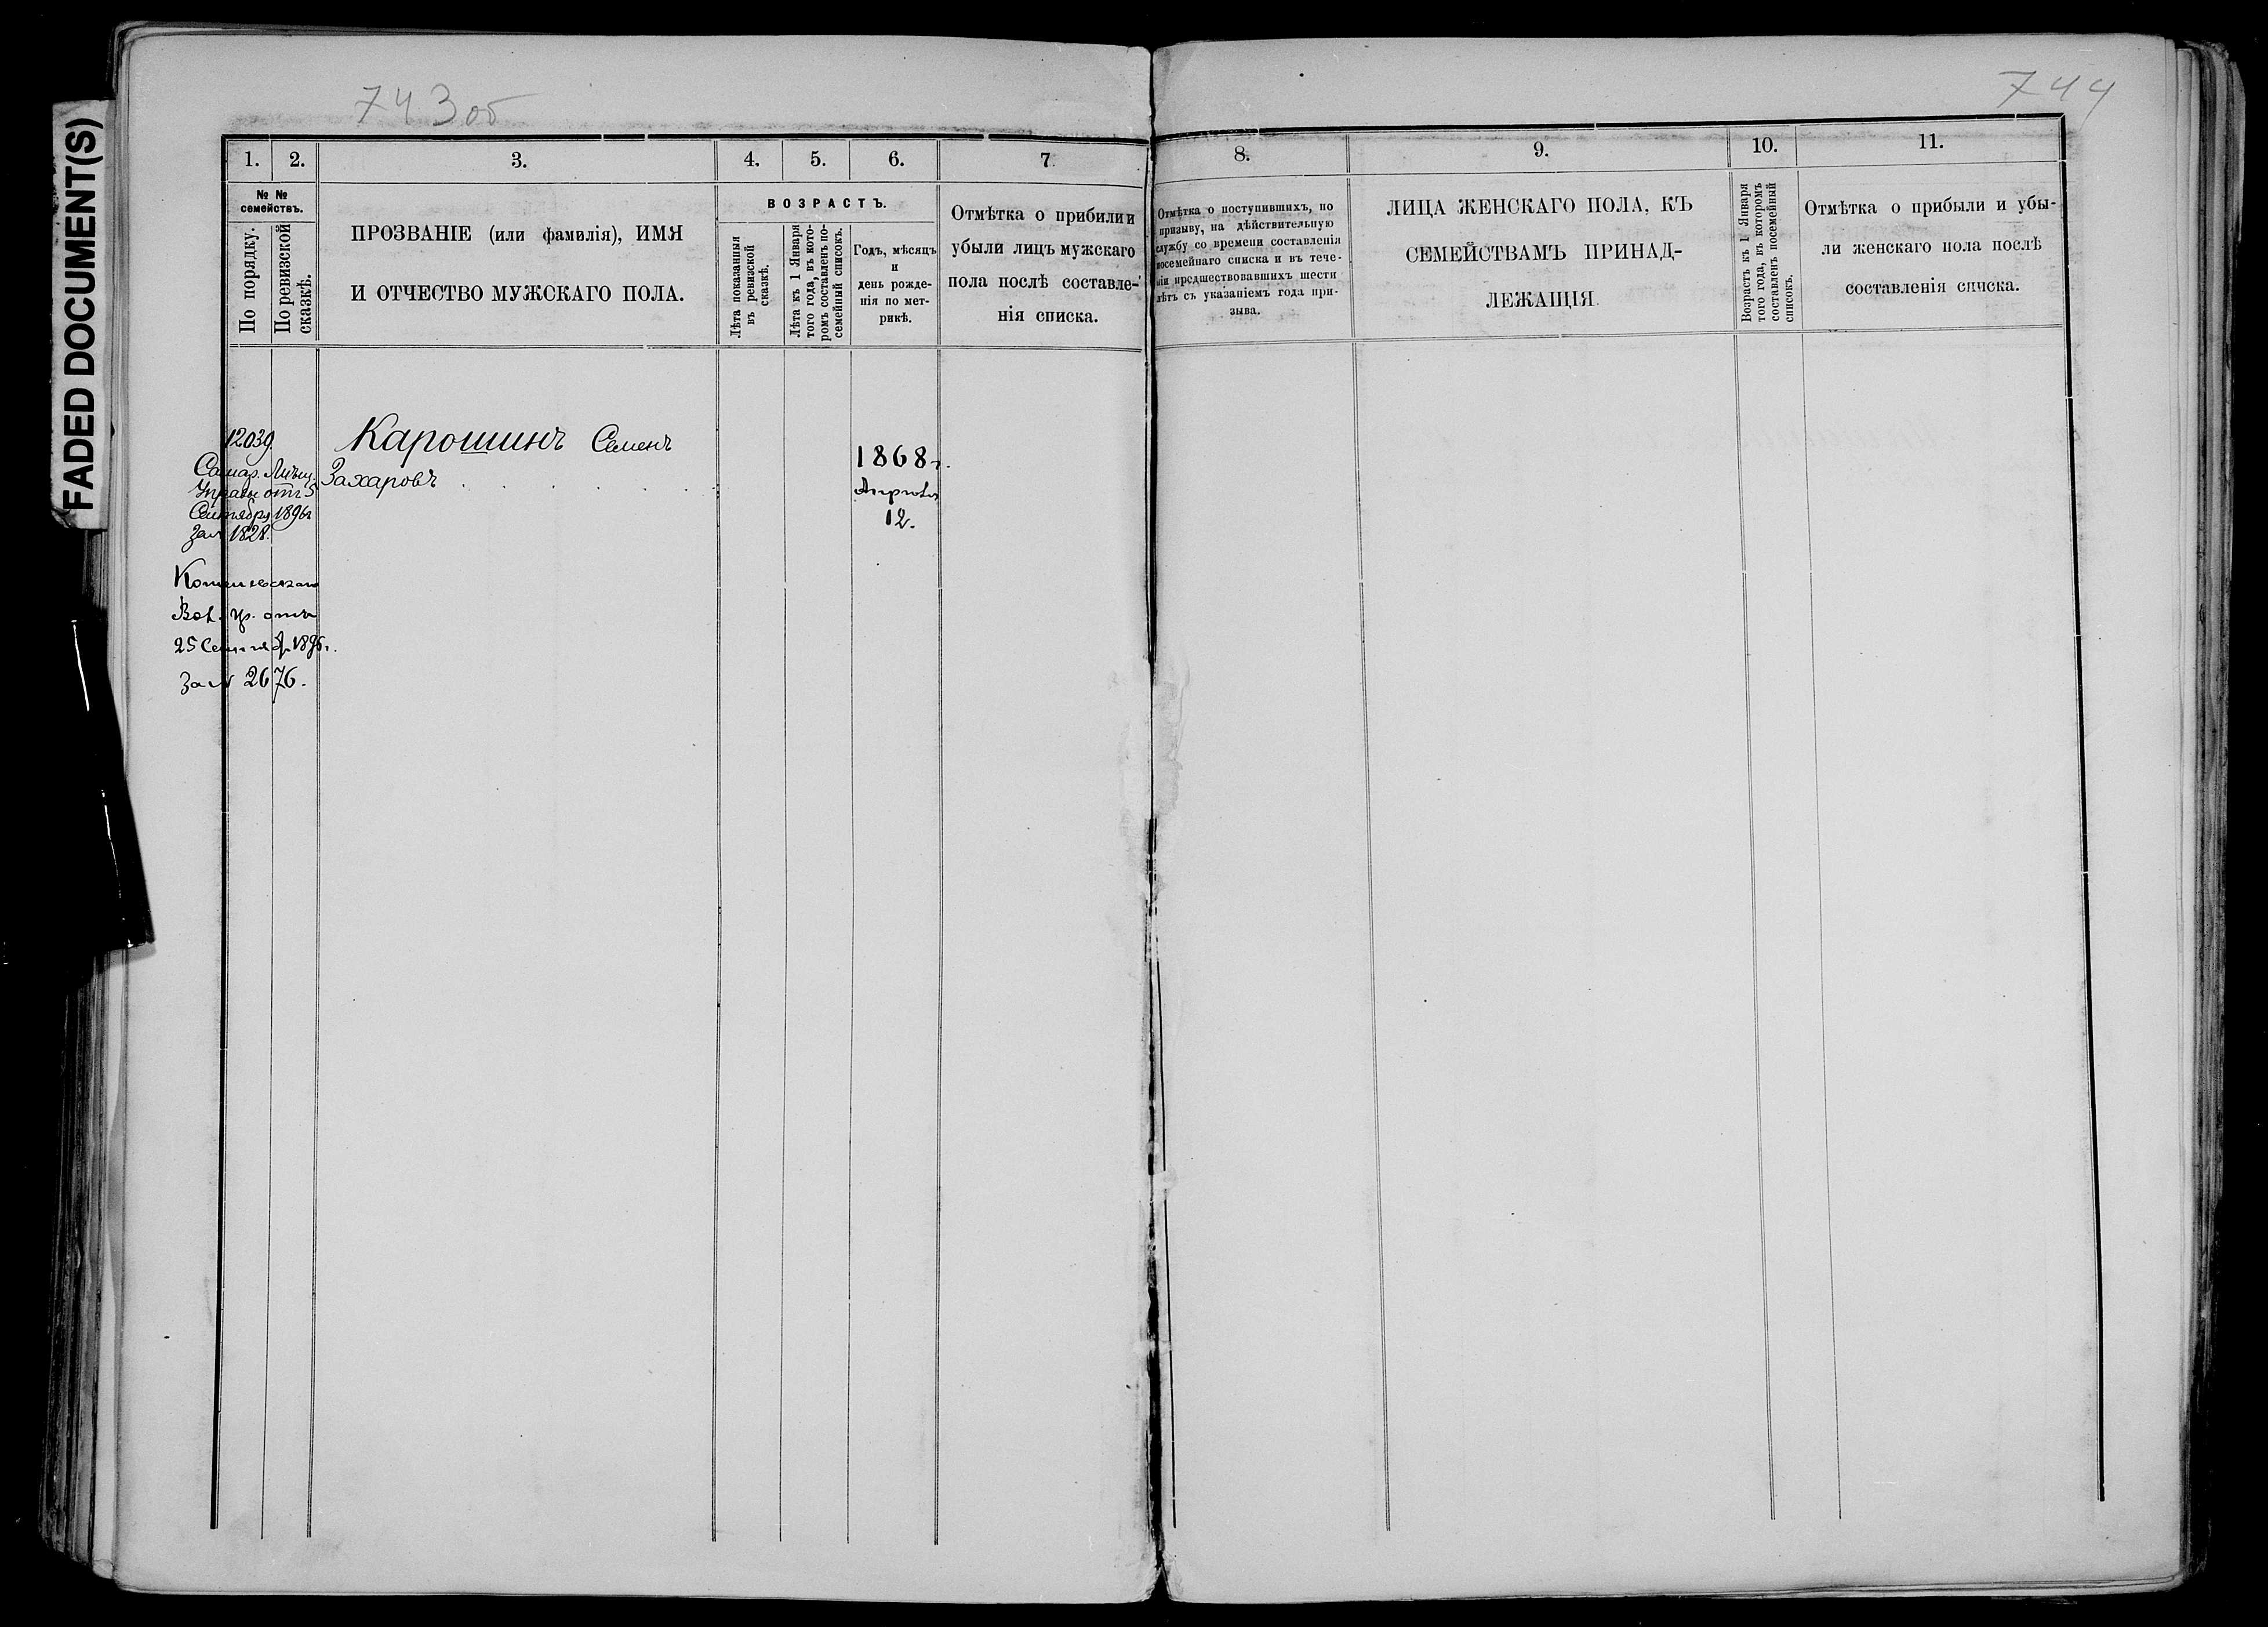 FADED DOCUMENT(S)
743об
744
1.
2.
3.
4.
5.
6.
7.
8.
9.
10.
11.
№ №
семействъ.
По порядку.
По ревизской
сказкѣ.
ПРОЗВАНІЕ (или фамилія), ИМЯ
И ОТЧЕСТВО МУЖСКАГО ПОЛА.
ВОЗРАСТЪ.
Лѣта показанныя
въ ревизской
сказкѣ.
Лѣта къ 1 Января
того года, въ кото-
ромъ составленъ по-
семейный списокъ.
Годъ, мѣсяцъ
и
день рожде-
нія по мет-
рикѣ.
Отмѣтка о прибилии
убыли лицъ мужскаго
пола послѣ составле-
нія списка.
Отмѣтка о поступившихъ, по
призыву, на дѣйствительную
службу со времени составленія
посемейнаго списка и въ тече-
ніи предшествовавшихъ шести
лѣтъ съ указаніемъ года при-
зыва.
ЛИЦА ЖЕНСКАГО ПОЛА, КЪ
СЕМЕЙСТВАМЪ ПРИНАД-
ЛЕЖАЩІЯ.
Возрастъ къ 1 Января
того года, въ которомъ
составленъ посемейный
списокъ.
Отмѣтка о прибыли и убы-
ли женскаго пола послѣ
составленія списка.
12039.
Самар. Мѣщ.
Управы отъ 5
Сентября 1896г
за № 1828.
Вол. Пр. отъ
25 Сентяб. 1896г.
за № 2676.
Карошинъ Семенъ
Захаровъ
1868г.
Апрѣля
12.